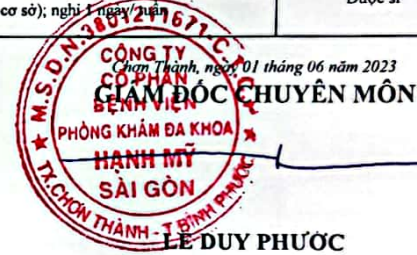 cơ sở); nghỉ 1 ngày/ tuần
Dược sĩ
Chơn Thành, ngày 01 tháng 06 năm 2023
GIÁM ĐỐC CHUYÊN MÔN
M.S.D.N:3801211671-C.T.C.P
CÔNG TY
CỔ PHẦN
BỆNH VIỆN
PHÒNG KHÁM ĐA KHOA
HẠNH MỸ
SÀI GÒN
TX.CHƠN THÀNH - T BÌNH PHƯỚC
LÊ DUY PHƯỚC